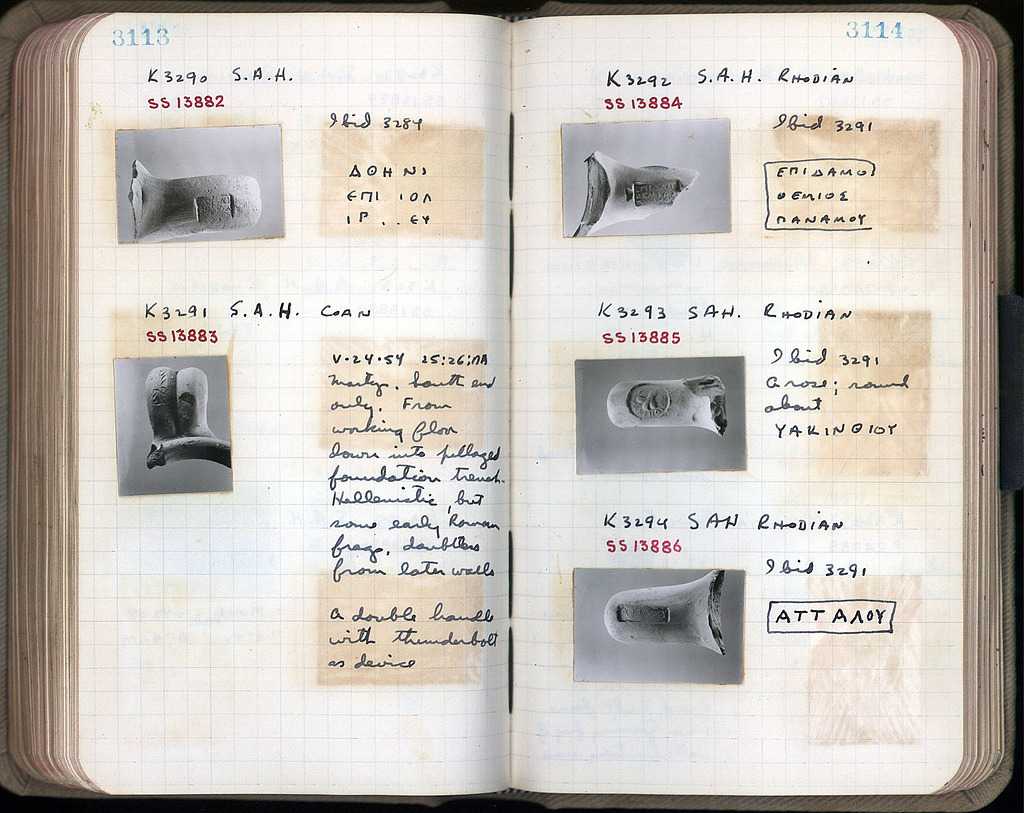 3113
K3290 S.A.H.
SS 13882
Ibid 3284
ΔΘΗΝΙ
ΕΠΙ ΙΟΛ
ΙΡ . . ΕΥ
K3291 S.A.H. COAN
SS 13883
V·24·54 25:26:ΠΑ
Martyr. South end
only. From
working floor
down into pillaged
foundation trench.
Hellenistic, but
some early Roman
frags, doubtless
from later walls
A double handle
with thunderbolt
as device
3114
K3292 S.A.H. RHODIAN
SS 13884
Ibid 3291
ΕΠΙΔΑΜΟ
ΘΕΜΙΟΣ
ΠΑΝΑΜΟΥ
K3293 SAH. RHODIAN
SS 13885
Ibid 3291
A rose; round
about
YAKINΘIOY
K3294 SAH RHODIAN
SS 13886
Ibid 3291
ΑΤΤΑΛΟΥ